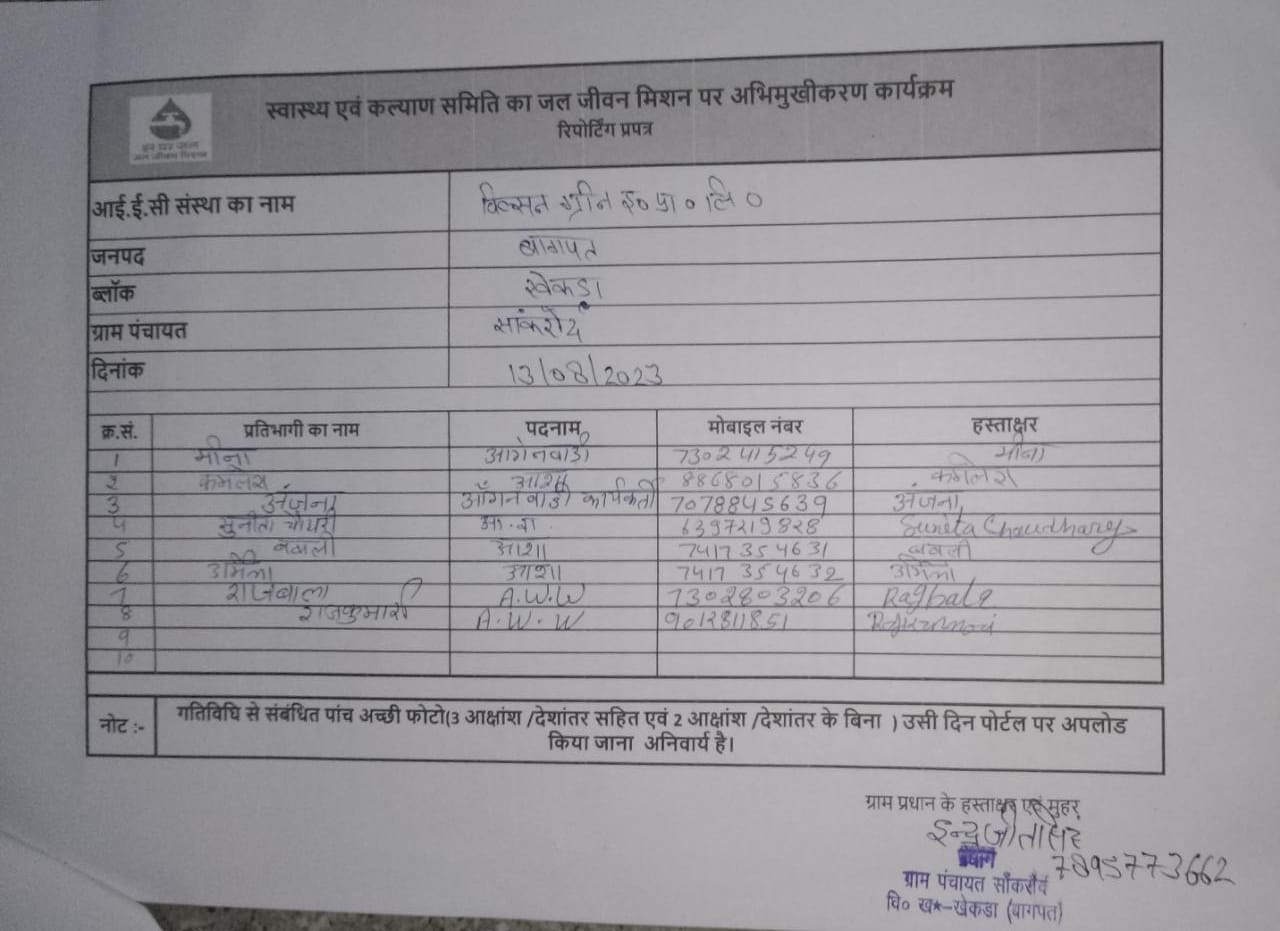 स्वास्थ्य एवं कल्याण समिति का जल जीवन मिशन पर अभिमुखीकरण कार्यक्रम
रिपोर्टिंग प्रपत्र
हर घर जल
जल जीवन मिशन
आई.ई.सी संस्था का नाम विल्सन ग्रीन इ० प्रा० लि०
जनपद बागपत
ब्लॉक खेकडा
ग्राम पंचायत सांकरोद
दिनांक 13/08/2023
क्र.सं. प्रतिभागी का नाम पदनाम मोबाइल नंबर हस्ताक्षर
1 मीना आगेनवाडी 7302415249 मीना
2 कमलेश आशा 8868015836 कमलेश
3 अंजना आँगनवाडी कार्यकर्ता 7078845639 अंजना
4 सुनीता चौधरी आ.शा 6397219828 Suneta Chaudhary
5 बबली आशा 7417354631 बबली
6 उर्मिला आशा 7417354632 उर्मिला
7 राजबाला A.W.W 7302803206 Rajbala
8 राजकुमारी A.W.W 9012811851
9
10
नोट :- गतिविधि से संबंधित पांच अच्छी फोटो(3 आक्षांश /देशांतर सहित एवं 2 आक्षांश /देशांतर के बिना ) उसी दिन पोर्टल पर अपलोड
किया जाना अनिवार्य है।
ग्राम प्रधान के हस्ताक्षर एवं मुहर
प्रधान 7895773662
ग्राम पंचायत साँकरौद
वि० ख*-खेकडा (बागपत)